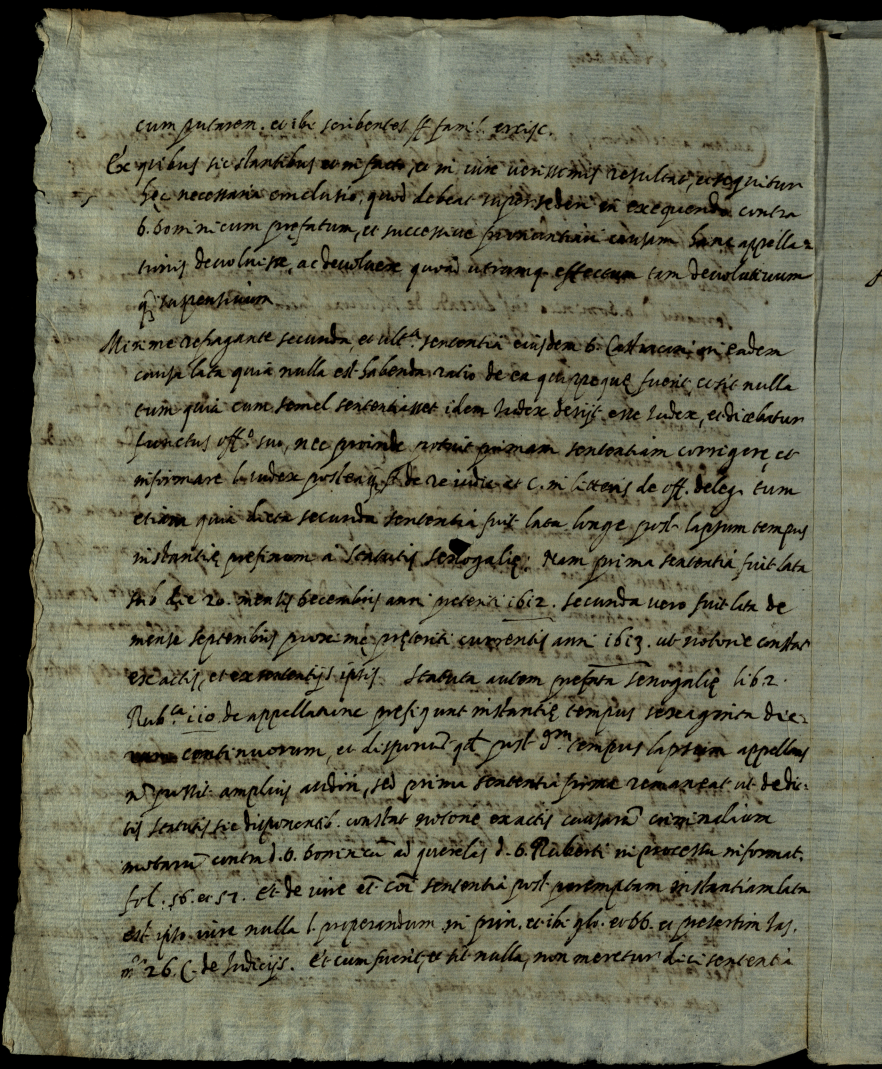 cum putarem. et ibi scribentes ff famil. ercisc.
Ex quibus sic stantibus et in facto, et in iure verissimis resultat, et sequitur
hęc necessaria conclusio, quod debeat supersederi in exequendo contra
D. Dominicum pręfatum, et successive pronuntiari causam hanc appella-
tionis devolvisse, ac devolvere quoad utrumq effectum tam devolutivum
q suspensivum
Minime refragante secunda, et ult.a sententia eiusdem D. in eadem
causa lata quia nulla est habenda ratio de ea quę neque fuerit, et sit nulla
tum quia cum semel sententiasset idem Iudex desijt esse Iudex, et dicebatur
functus off.o suo, nec proinde potuit primam sententiam corrigere et
informare l. Iudex postea ff de re iudic et C. in litteris de off. deleg. tum
etiam quia dicta secunda sententia fuit lata longe post lapsum tempus
instantię prefinitum a statutis Senogalię; Nam prima sententia fuit lata
sub die 20. mensis Decembris anni 1612. secunda vero fuit lata de
mense septembris proximę pręteriti currentis anni 1613. ut notorie constat
ex actis, et ex sententijs ipsis. Statuta autem prefata Senogalię lib. 2.
Rub.ca 110 de appellatione prefigunt instantię tempus sexaginta die-
continuorum, et disponunt qd post dm tempus lapsum appellans
n possit amplius audiri, sed prima sententia firma remaneat ut de dic-
tis statutis sic disponentib. constat notorie ex actis causarum criminalium
motarum contra d. D. Dominicum ad querelas d. D. Ruberti in processu informat.
fol. 56. et 57. Et de iure et coi sententia post peremptam instantiam lata
est ipso iure nulla l. properandum in prin. et ibi glo. et DD. et presertim Ias.
n.o 26. C. de Iudicijs. Et cum fuerit, et sit nulla, non meretur dici sententia